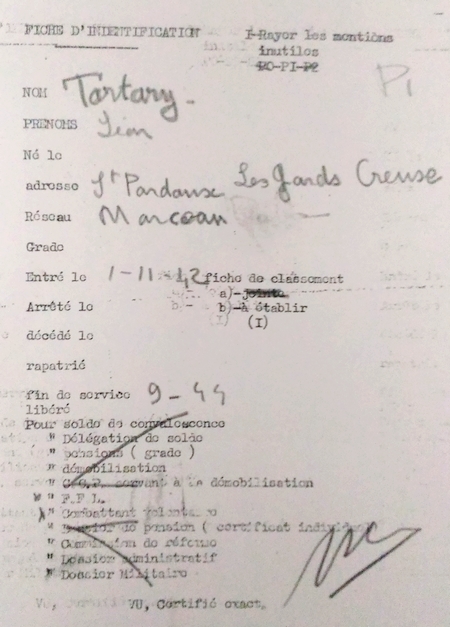 FICHE D'INDENTIFICATION I-Rayer les mentions
inutiles
RO-PI-P2
P1
NOM Tartary
PRENOMS Léon
Né le
adresse St Pardoux Les Gards Creuse
Réseau Marceau
Grade
Entré le 1-11-42 fiche de classement
a)-jointe
Arrêté le b)-à établir
(I)
décédé le
rapatrié
fin de service 9-44
libéré
Pour solde de convalescence
" Délégation de solde
" pensions ( grade )
" démobilisation
" C.C.P. servant à la démobilisation
" F.F.L.
" Combattant volontaire
" de pension ( certificat individuel)
" Commission de réforme
" Dossier administratif
" Dossier Militaire
VU, Certifié exact,